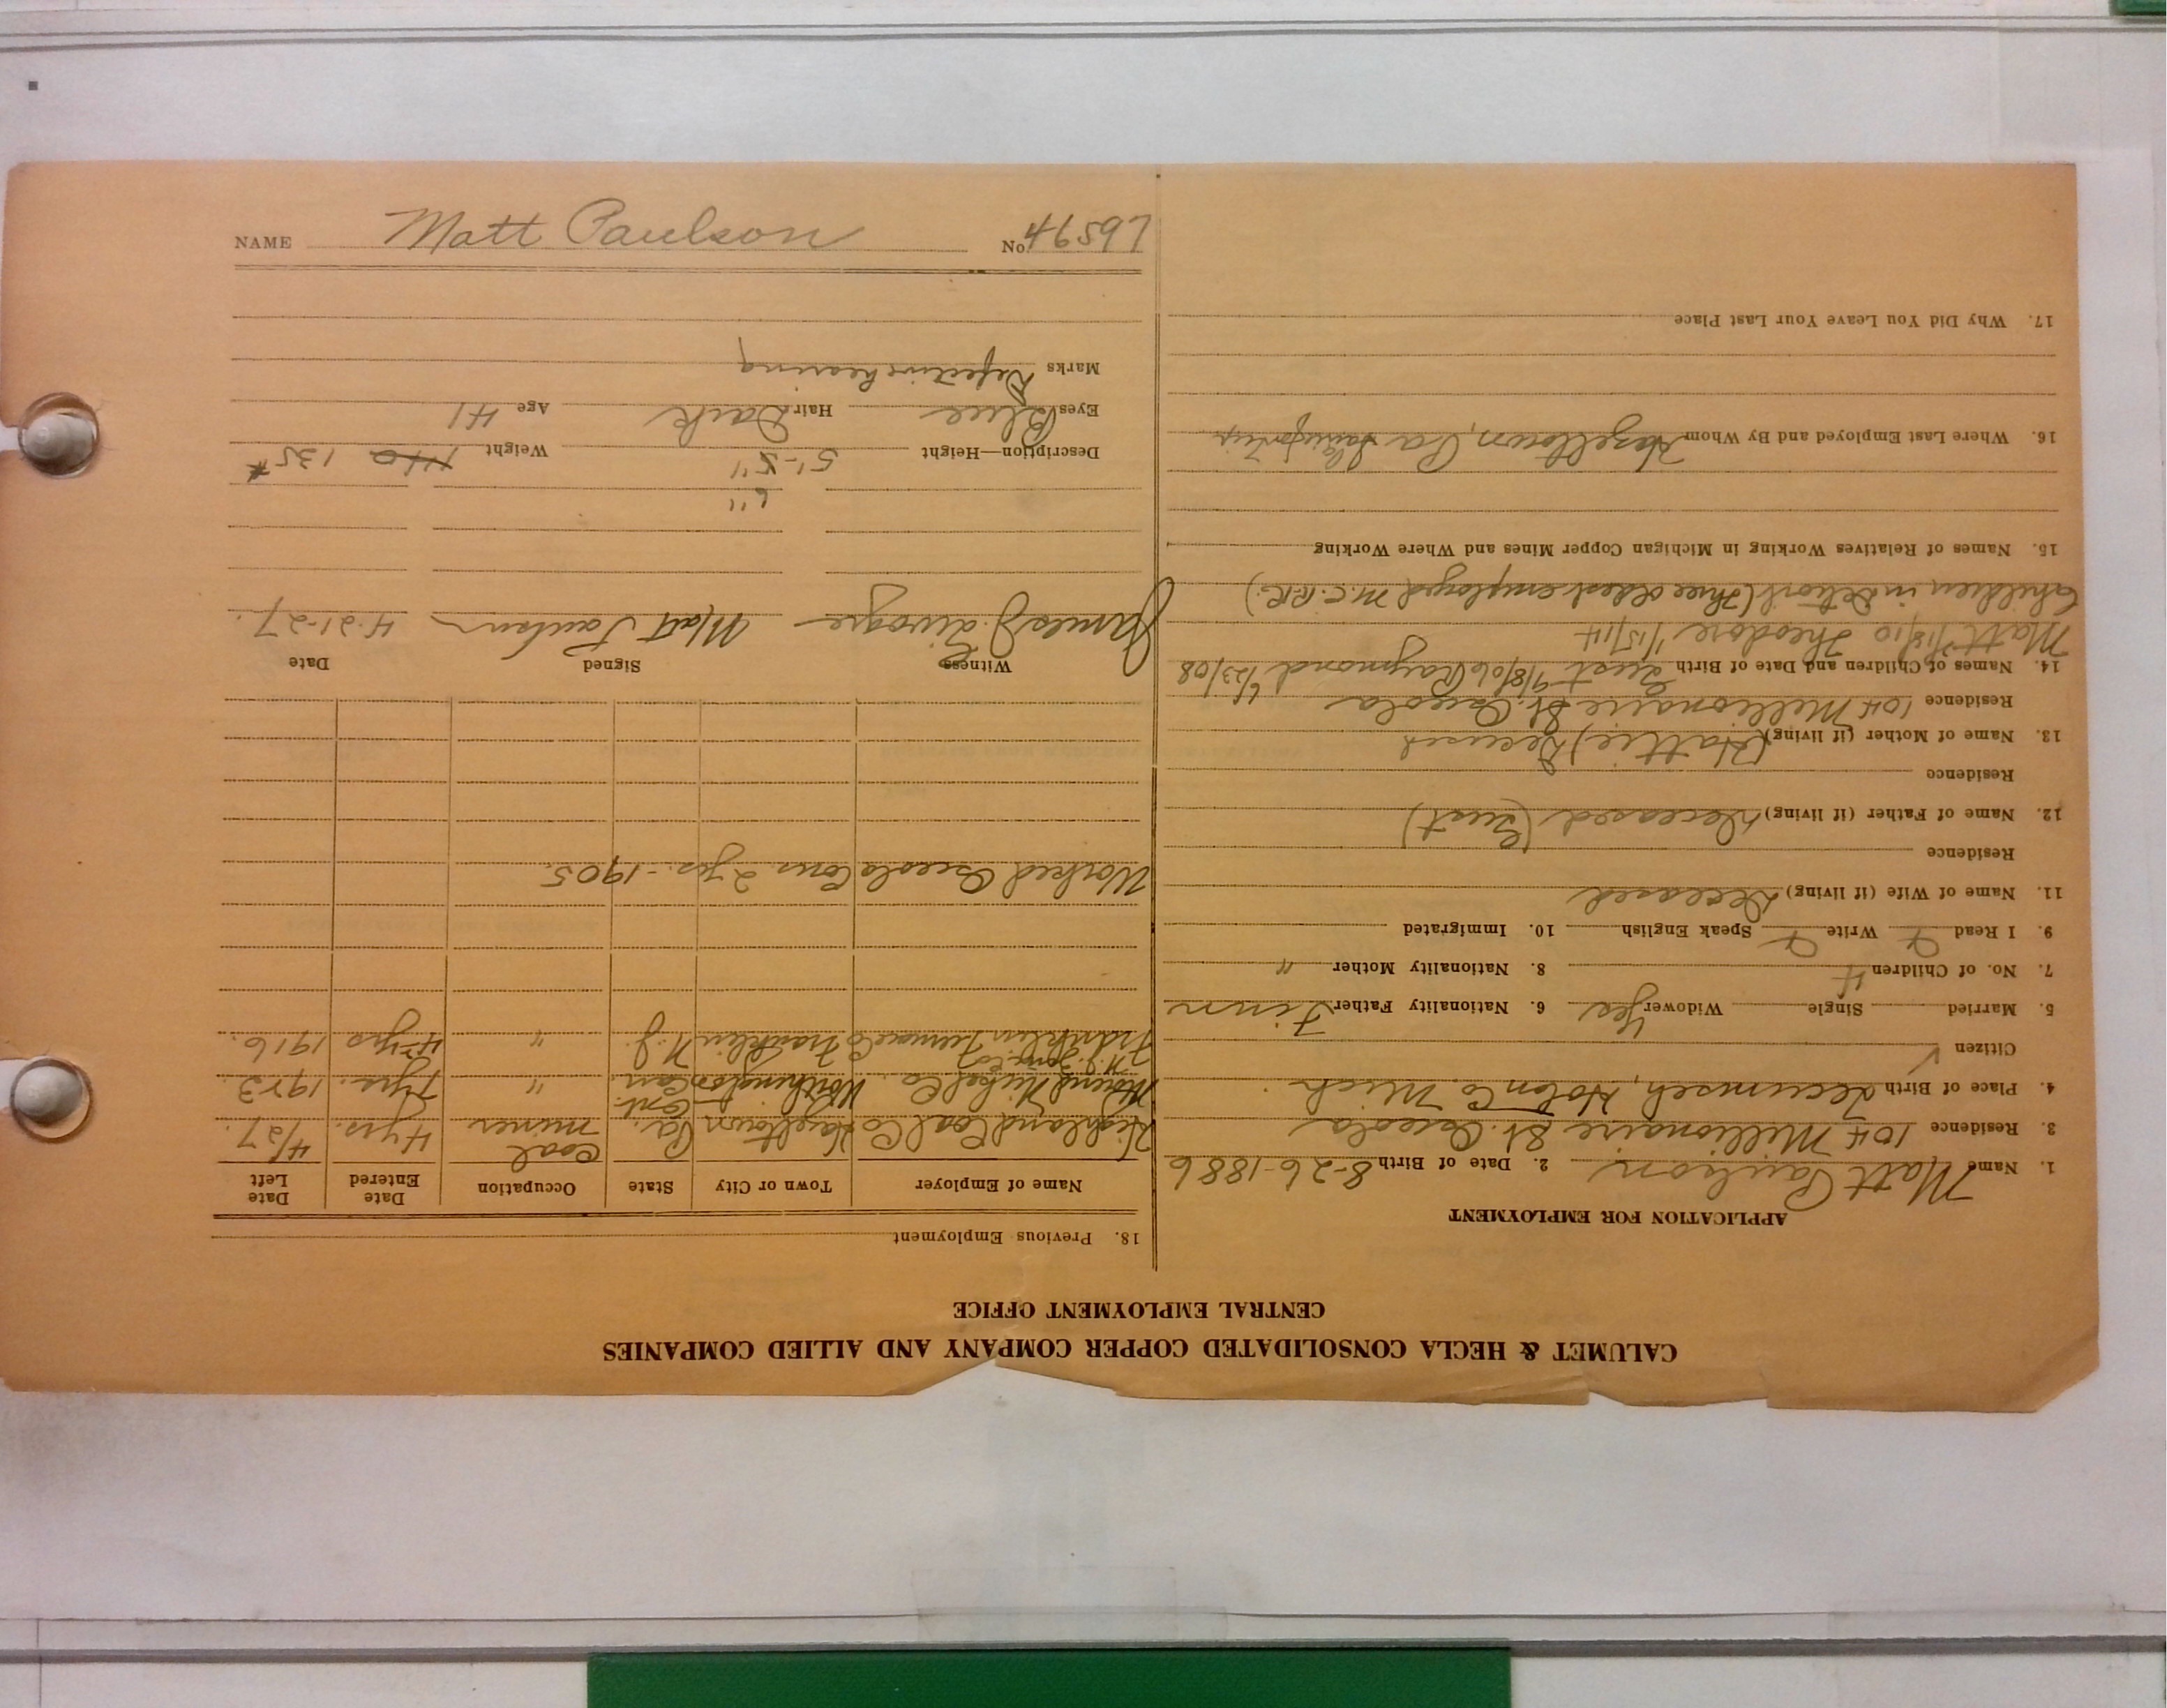 NAME Matt Paulson No. 46597
CALUMET & HECLA CONSOLIDATED COPPER COMPANY AND ALLIED COMPANIES
CENTRAL EMPLOYMENT OFFICE
APPLICATION FOR EMPLOYMENT
1. Name Matt Paulson 2. Date of Birth 8-26-1886
3. Residence 104 Millionaire St. Osceola
4. Place of Birth Tecumseh, Hoton Co. Mich.
Citizen ✓
5. Married Single Widower Yes 6. Nationality Father Finn
7. No. of Children 4 8. Nationality Mother "
9. I Read Write Speak English 10. Immigrated
11. Name of Wife (if living) Deceased
Residence
12. Name of Father (if living) Deceased (Gust)
Residence
13. Name of Mother (if living) (Hattie) Deceased
Residence 104 Millionaire St. Osceola
14. Names of Children and Date of Birth Gust 9/8/06 Raymond 6/23/08
Matt 7/18/10 Theodore 1/15/14
Children in Detroit (three oldest employed M.C.R.R.)
15. Names of Relatives Working in Michigan Copper Mines and Where Working
16. Where Last Employed and By Whom Hazeltown, Pa
17. Why Did You Leave Your Last Place
18. Previous Employment
Name of Employer Town or City State Occupation Date Entered Date Left
Highland Coal Co Hazeltown Pa. Coal miner 4 yrs. 4/27
Mound Nickel Co. Worthington Ont. Can. " 7 yrs. 1923
N.J. Zinc Co
Franklin Furnace Co Franklin N.J. " 4 yrs 1916.
Worked Osceola Cons 2 yrs. - 1905.
Witness Signed Date
James J. Matt Paulson 4-21-27.
6"
Description—Height 5'-5" Weight 140 135#
Eyes Blue Hair Dark Age 41
Marks Defective hearing